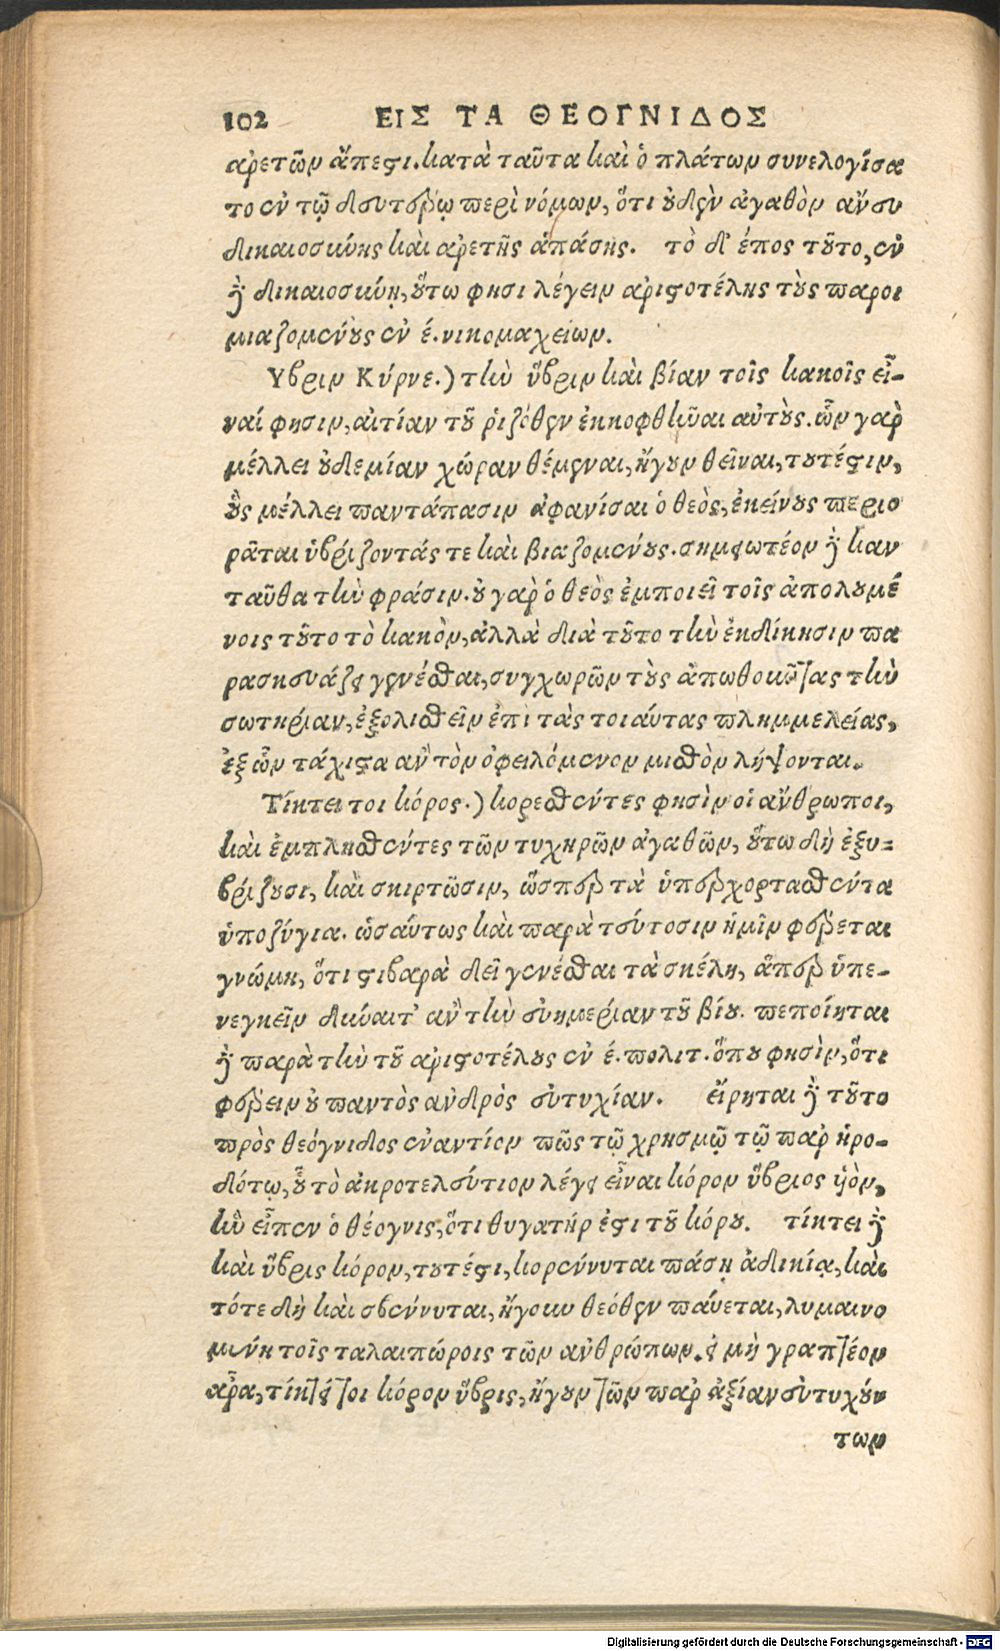 102 ΕΙΣ ΤΑ ΘΕΟΓΝΙΔΟΣ
αρετῶν ἄπεστι. κατὰ ταῦτα καὶ ὁ πλάτων συνελογίσα
το ἐν τῷ δευτέρῳ περὶ νόμων, ὅτι οὐδὲν ἀγαθὸν ἄνευ
δικαιοσύνης καὶ αρετῆς ἁπάσης. τὸ δ' έπος τοῦτο, ἐν
δὲ δικαιοσύνῃ, οὕτω φησι λέγειν αριστοτέλης τοὺς παροι
μιαζομένους ἐν έ. νικομαχείων.
Υβριν Κύρνε.) τὴν ὕβριν καὶ βίαν τοῖς κακοῖς εἶ-
ναί φησιν, αἰτίαν τοῦ ῥιζόθεν ἐκκοφθῆναι αὐτοὺς. ὧν γαρ
μέλλει οὐδεμίαν χώραν θέμεναι, ἤγουν θεῖναι, τουτέστιν,
οὓς μέλλει παντάπασιν αφανίσαι ὁ θεὸς, ἐκείνους περιο
ρᾶται ὑβρίζοντάς τε καὶ βιαζομένους. σημειωτέον δὲ καν
ταῦθα τὴν φράσιν. οὐ γαρ ὁ θεὸς ἐμποιεῖ τοῖς ἀπολουμέ
νοις τοῦτο τὸ κακὸν, ἀλλὰ διὰ τοῦτο τὴν ἐκδίκησιν πα
ρασκευάζει γενέσθαι, συγχωρῶν τοὺς ἀπωθοῦντας τὴν
σωτηρίαν, ἐξολισθεῖν ἐπὶ τὰς τοιαύτας πλημμελείας,
ἐξ ὧν τάχιστα ἂν τὸν ὀφειλόμενον μισθὸν λήψονται.
Τίκτει τοι κόρος.) κορεσθέντες φησὶν οἱ ἄνθρωποι,
καὶ ἐμπλησθέντες τῶν τυχηρῶν αγαθῶν, οὕτω δὴ ἐξυ-
βρίζουσι, καὶ σκιρτῶσιν, ὥσπερ τὰ ὑπερχορτασθέντα
ὑποζύγια. ὡσαύτως καὶ παρὰ τεύτοσιν ἡμῖν φέρεται
γνώμη, ὅτι στιβαρὰ δεῖ γενέσθαι τὰ σκέλη, ἅπερ ὑπε-
νεγκεῖν δύναιτ' ἂν τὴν εὐημερίαν τοῦ βίου. πεποίηται
δὲ παρὰ τὴν τοῦ αριστοτέλους ἐν έ. πολιτ. ὅπου φησὶν, ὅτι
φέρειν οὐ παντὸς ανδρὸς εὐτυχίαν. εἴρηται δὲ τοῦτο
πρὸς θεόγνιδος ἐναντίον πῶς τῷ χρησμῷ τῷ παρ ἡρο-
δότῳ, οὗ τὸ ἀκροτελεύτιον λέγει εἶναι κόρον ὕβριος ὑὸν,
ἣν εἶπεν ὁ θέογνις, ὅτι θυγατήρ ἐστι τοῦ κόρου. τίκτει δὲ
καὶ ὕβρις κόρον, τουτέστι, κορέννυται πάσῃ ἀδικίᾳ, καὶ
τότε δὴ καὶ σβέννυται, ἤγουν θεόθεν παύεται, λυμαινο
μένη τοῖς ταλαιπώροις τῶν ανθρώπων. εἰ μὴ γραπτέον
αρα, τίκτει τοι κόρον ὕβρις, ἤγουν τῶν παρ ἀξίαν εὐτυχούν
των